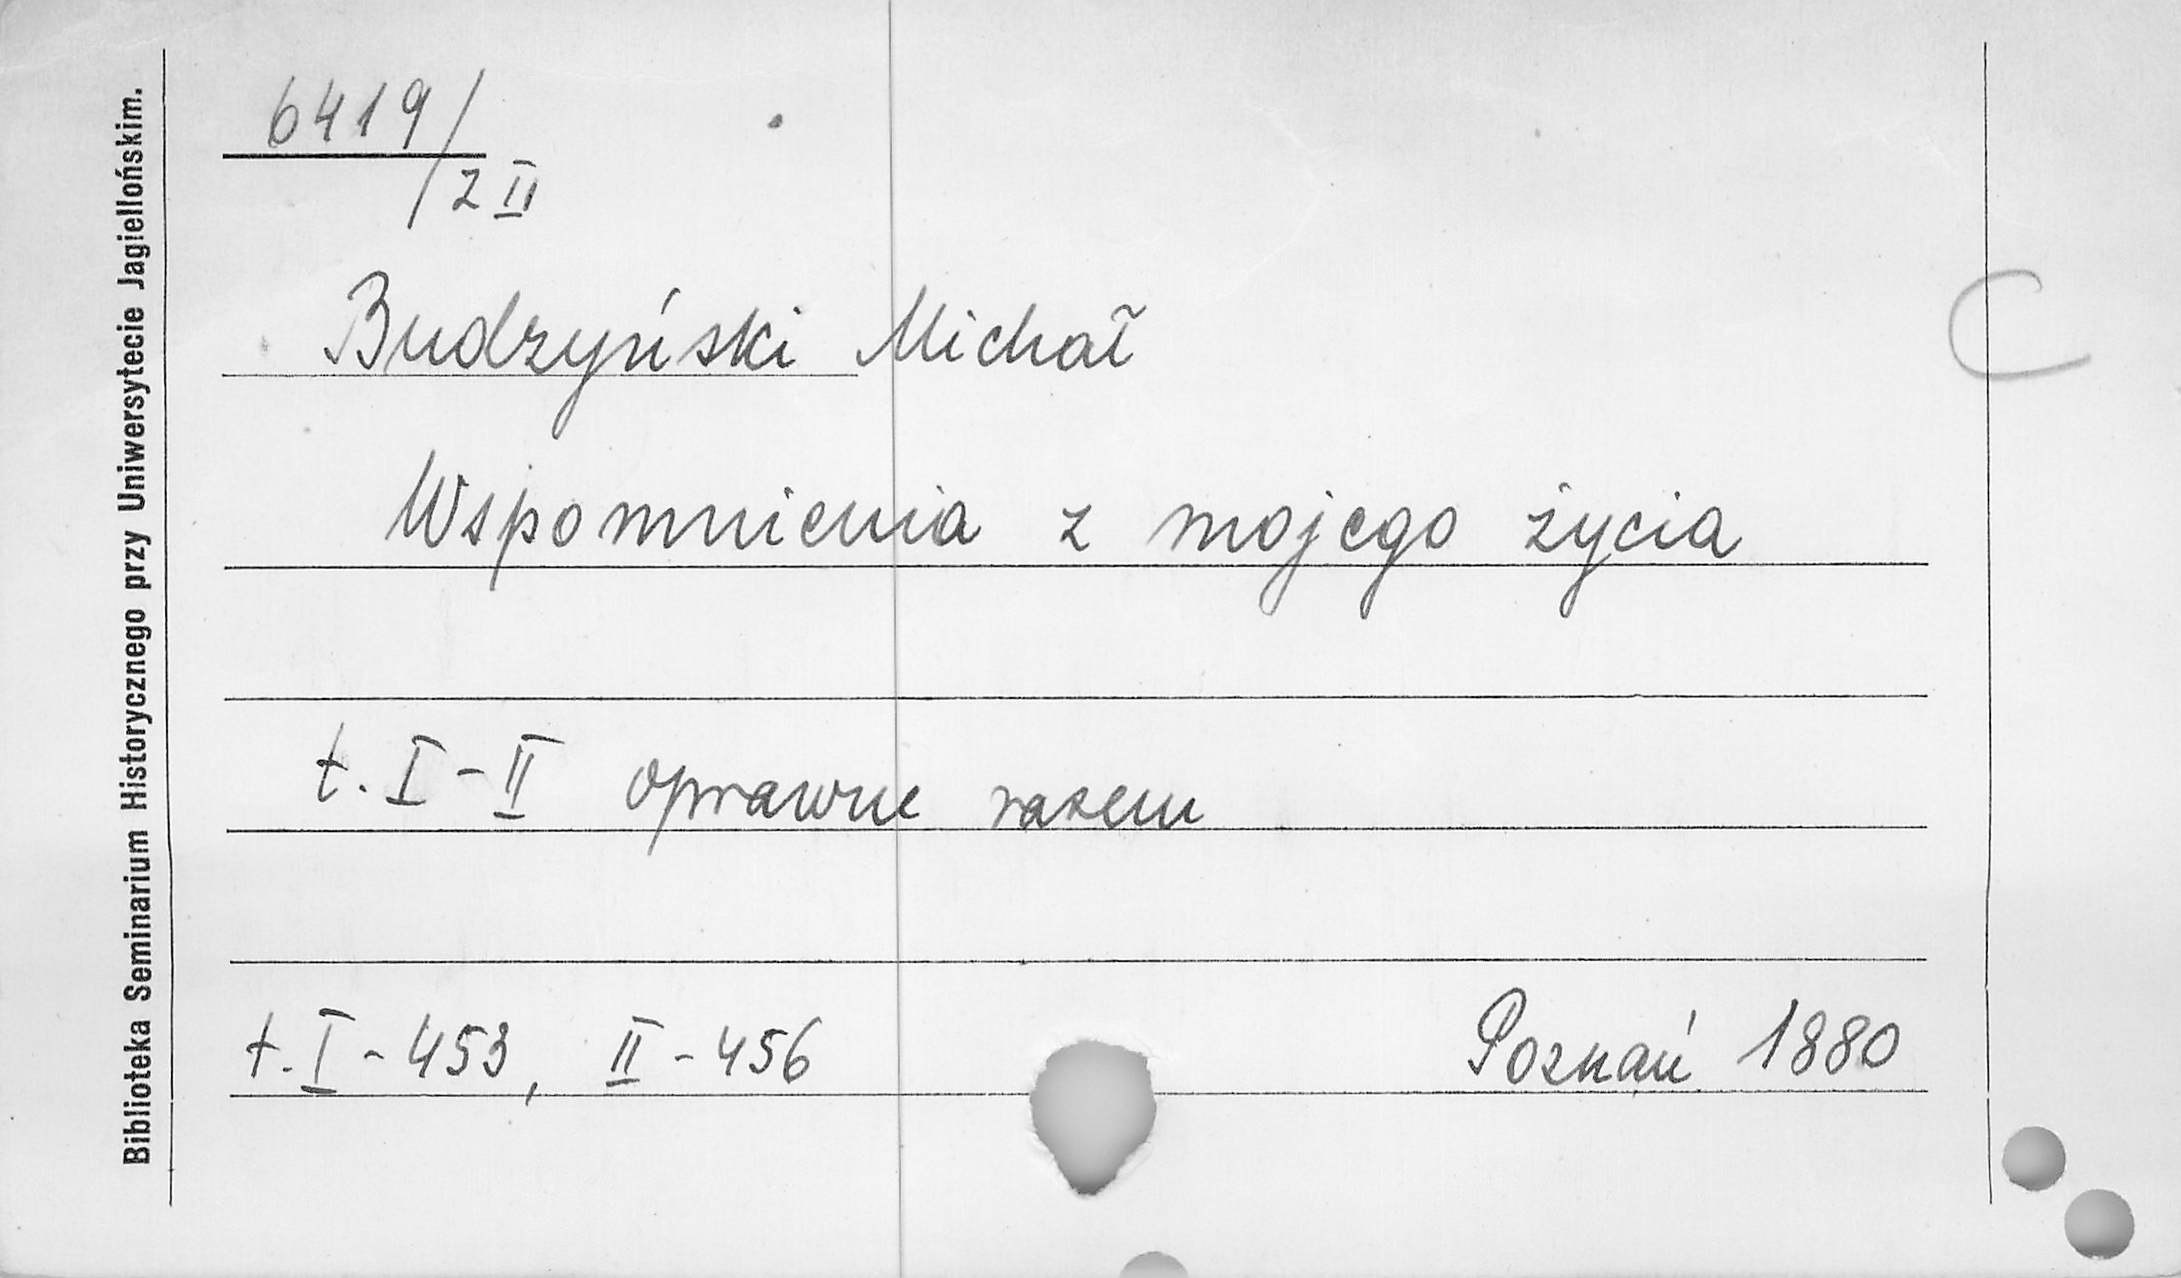 6419/
z II
Budzyński Michał
C
Wspomnienia z mojego życia
t. I - II oprawne razem
t. I - 453, II - 456
Poznań 1880
Biblioteka Seminarium Historycznego przy Uniwersytecie Jagiellońskim.